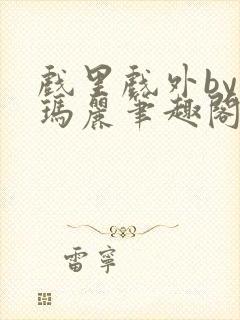 戲里戲外by
瑪麗筆趣閣
雷寧